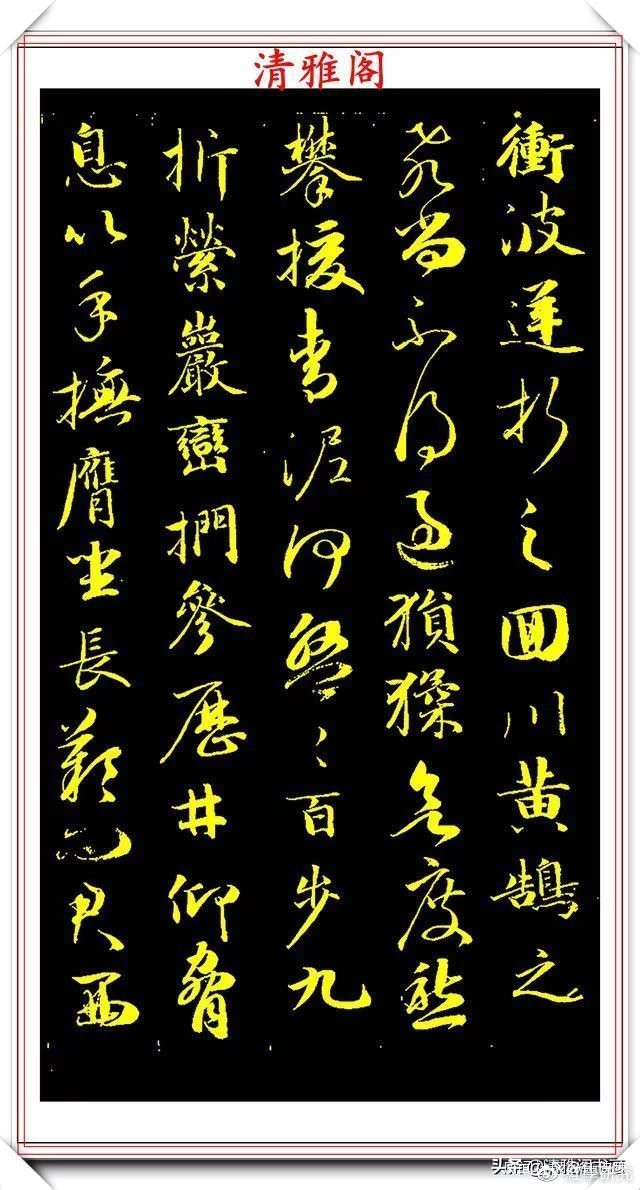 清雅阁
衝波逆折之回川黄鵠之
飛尚不得過猨猱欲度愁
攀援青泥何盤〻百步九
折縈巖巒捫參歷井仰脅
息以手撫膺坐長歎問君西
头条